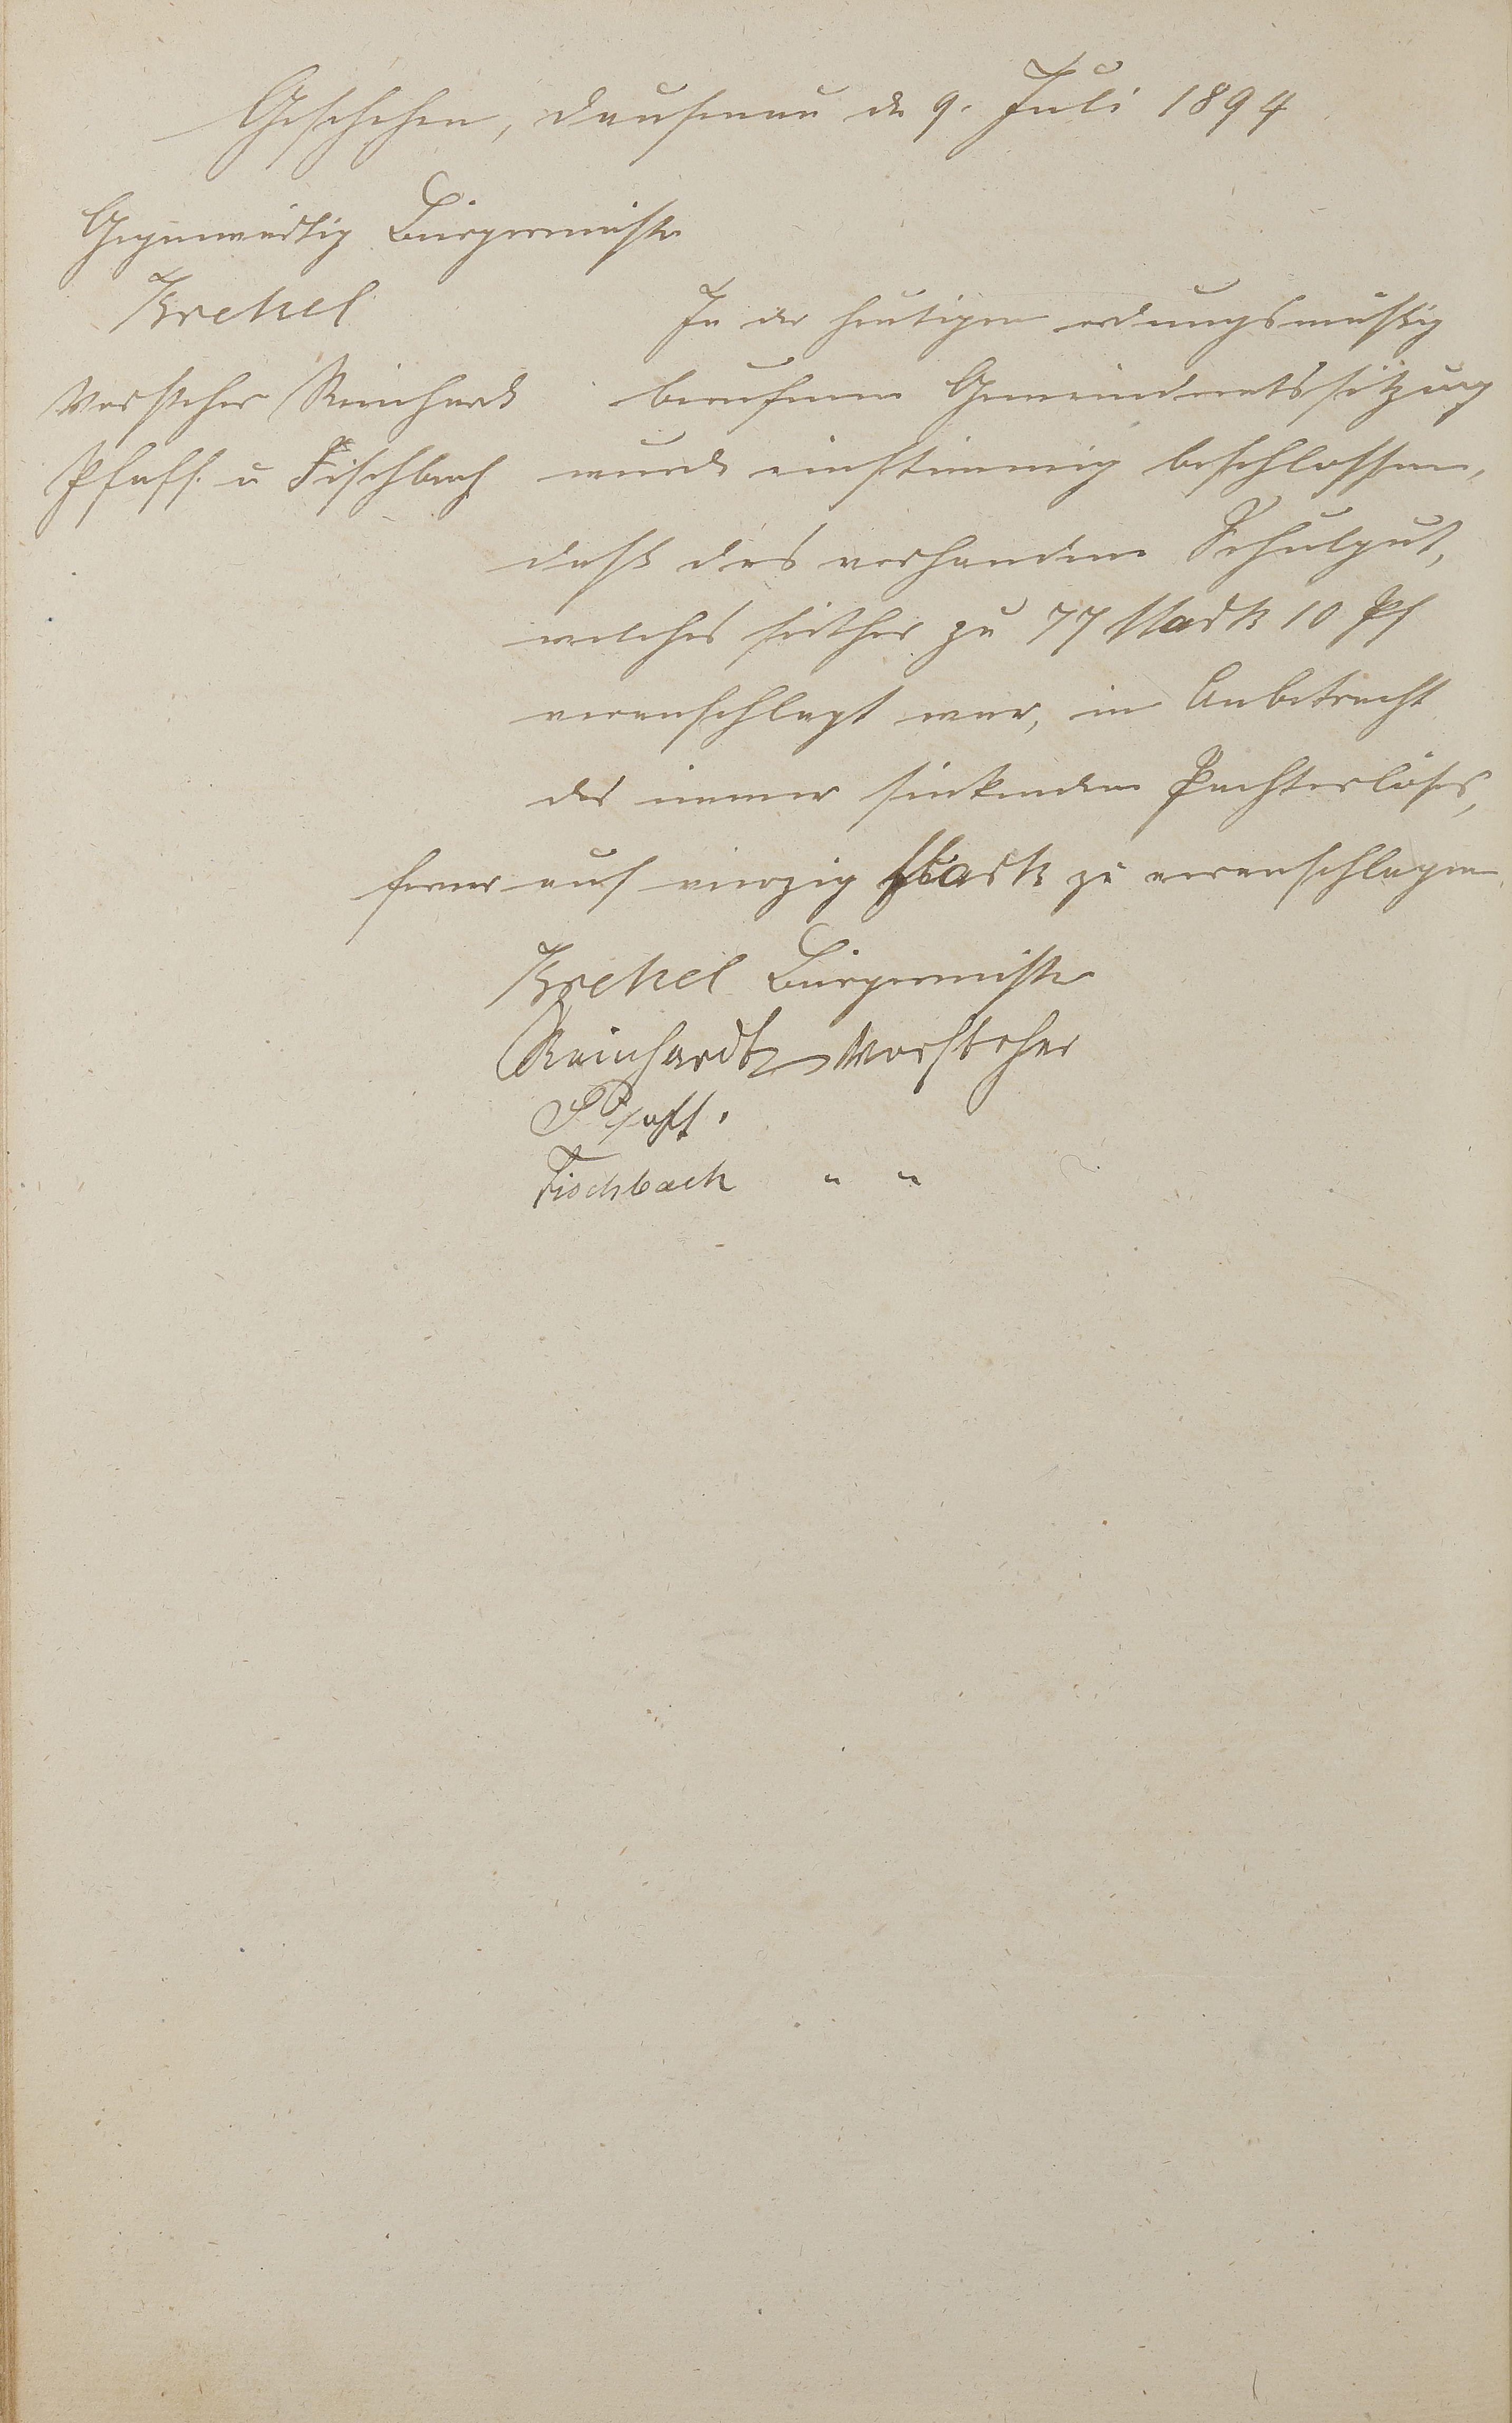 Geschehen, Dausenau d 9. Juli 1894
Gegenwärtig Bürgermeister
Krekel
Vorsteher Reinhard
Pfaff. u Fischbach
In der heutigen ordnungsmäßig
berufenen Gemeinderatssitzung
wurde einstimmig beschlossen,
daß das vorhandene Schulgut,
welches seither zu 77 Mark 10 Pf
veranschlagt war, in Anbetracht
des immer sinkenden Pachterlöses,
ferner auf vierzig Mark zu veranschlagen
Krekel Bürgermeister
Reinhardt Vorsteher
Pfaff.
Fischbach " "